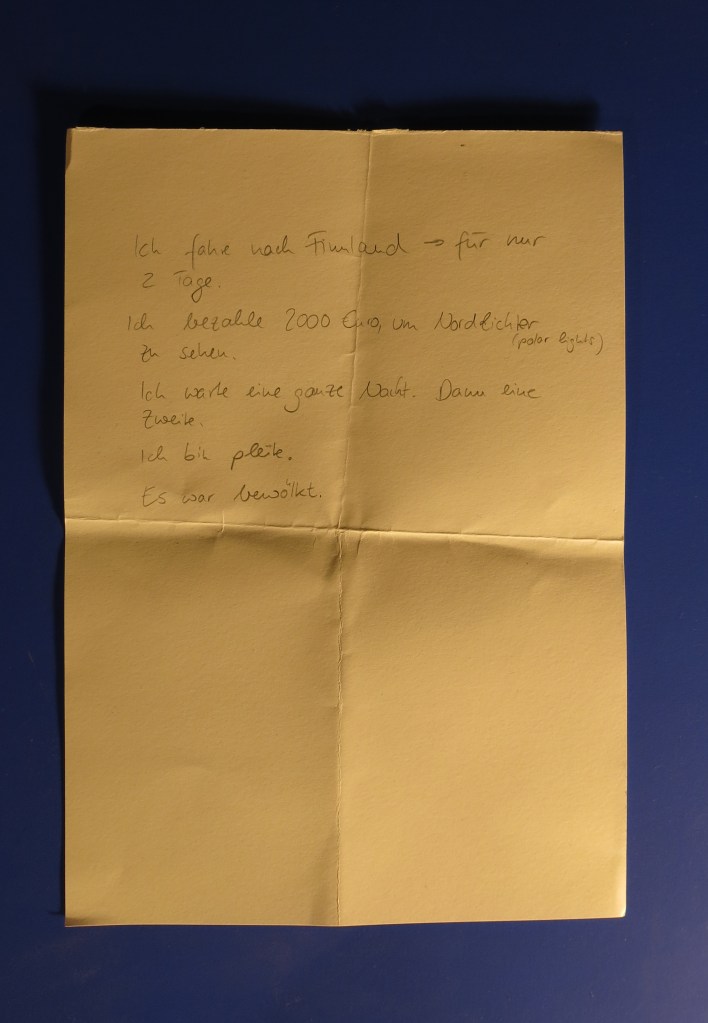 Ich fahre nach Finnland → für nur
2 Tage.
Ich bezahle 2000 Euro, um Nordlichter
(polar lights)
zu sehen.
Ich warte eine ganze Nacht. Dann eine
zweite.
Ich bin pleite.
Es war bewölkt.